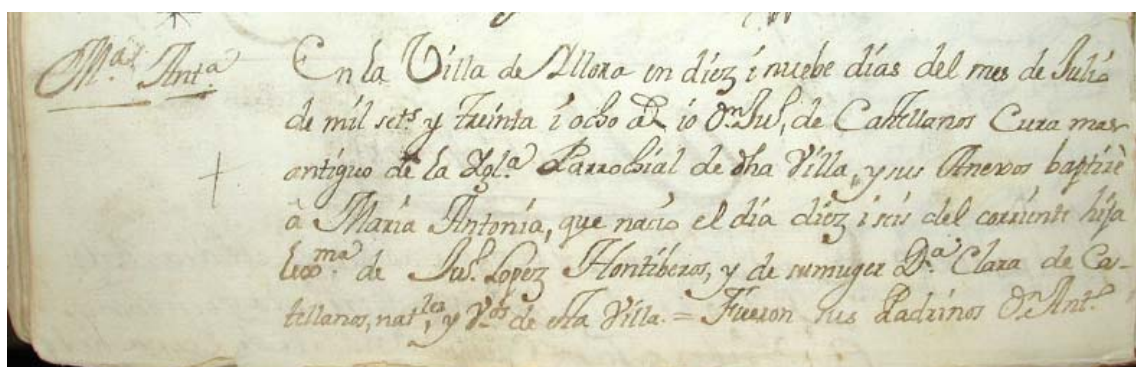 M.ª Ant.ª
En la Villa de Illora en diez i nuebe días del mes de Julio
de mil set.s y treinta i ocho a.s io D.n Ju.o de Castellanos Cura mas
antiguo de la Igl.ª Parrochial de dha Villa, y sus Anexos baptizè
â María Antonia, que nacio el día diez i seis del corriente hija
lexx.ma de Ju.o Lopez Hontiberos, y de su muger D.ª Clara de Ca-
stellanos, nat.les y V.os de esta Villa. = Fueron sus Padrinos D.n Ant.o